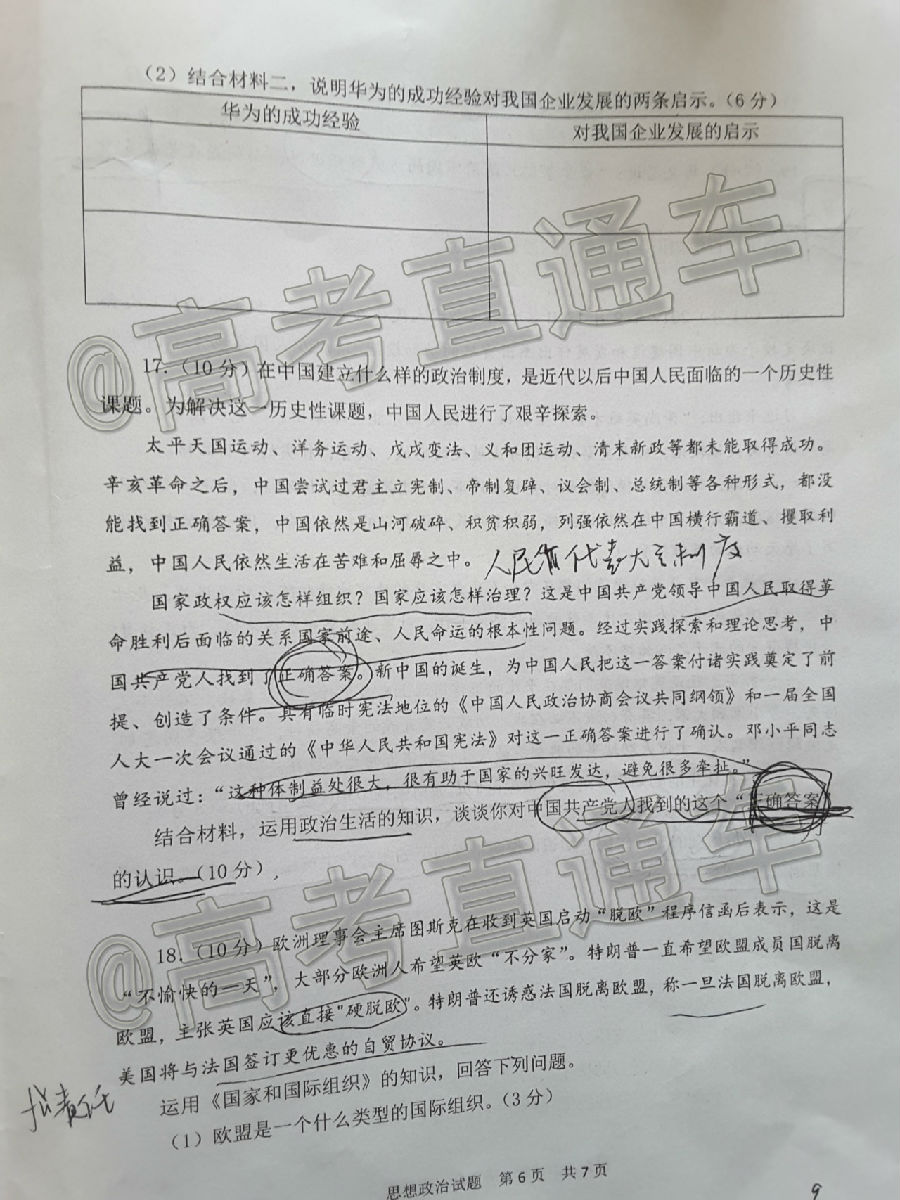 （2）结合材料二，说明华为的成功经验对我国企业发展的两条启示。（6分）
华为的成功经验
对我国企业发展的启示
@高考直通车
17.（10分）在中国建立什么样的政治制度，是近代以后中国人民面临的一个历史性
课题。为解决这一历史性课题，中国人民进行了艰辛探索。
太平天国运动、洋务运动、戊戌变法、义和团运动、清末新政等都未能取得成功。
辛亥革命之后，中国尝试过君主立宪制、帝制复辟、议会制、总统制等各种形式，都没
能找到正确答案，中国依然是山河破碎、积贫积弱，列强依然在中国横行霸道、攫取利
益，中国人民依然生活在苦难和屈辱之中。
人民 代表大 制度
国家政权应该怎样组织？国家应该怎样治理？这是中国共产党领导中国人民取得革
命胜利后面临的关系国家前途、人民命运的根本性问题。经过实践探索和理论思考，中
国共产党人找到了正确答案。新中国的诞生，为中国人民把这一答案付诸实践奠定了前
提、创造了条件。具有临时宪法地位的《中国人民政治协商会议共同纲领》和一届全国
人大一次会议通过的《中华人民共和国宪法》对这一正确答案进行了确认。邓小平同志
曾经说过：“这种体制益处很大，很有助于国家的兴旺发达，避免很多牵扯。”
结合材料，运用政治生活的知识，谈谈你对中国共产党人找到的这个“正确答案”
的认识。（10分）
@高考直通车
18.（10分）欧洲理事会主席图斯克在收到英国启动“脱欧”程序信函后表示，这是
“不愉快的一天”，大部分欧洲人希望英欧“不分家”。特朗普一直希望欧盟成员国脱离
欧盟，主张英国应该直接"硬脱欧"。特朗普还诱惑法国脱离欧盟，称一旦法国脱离欧盟，
美国将与法国签订更优惠的自贸协议。
运用《国家和国际组织》的知识，回答下列问题。
（1）欧盟是一个什么类型的国际组织。（3分）
思想政治试题 第6页 共7页
9